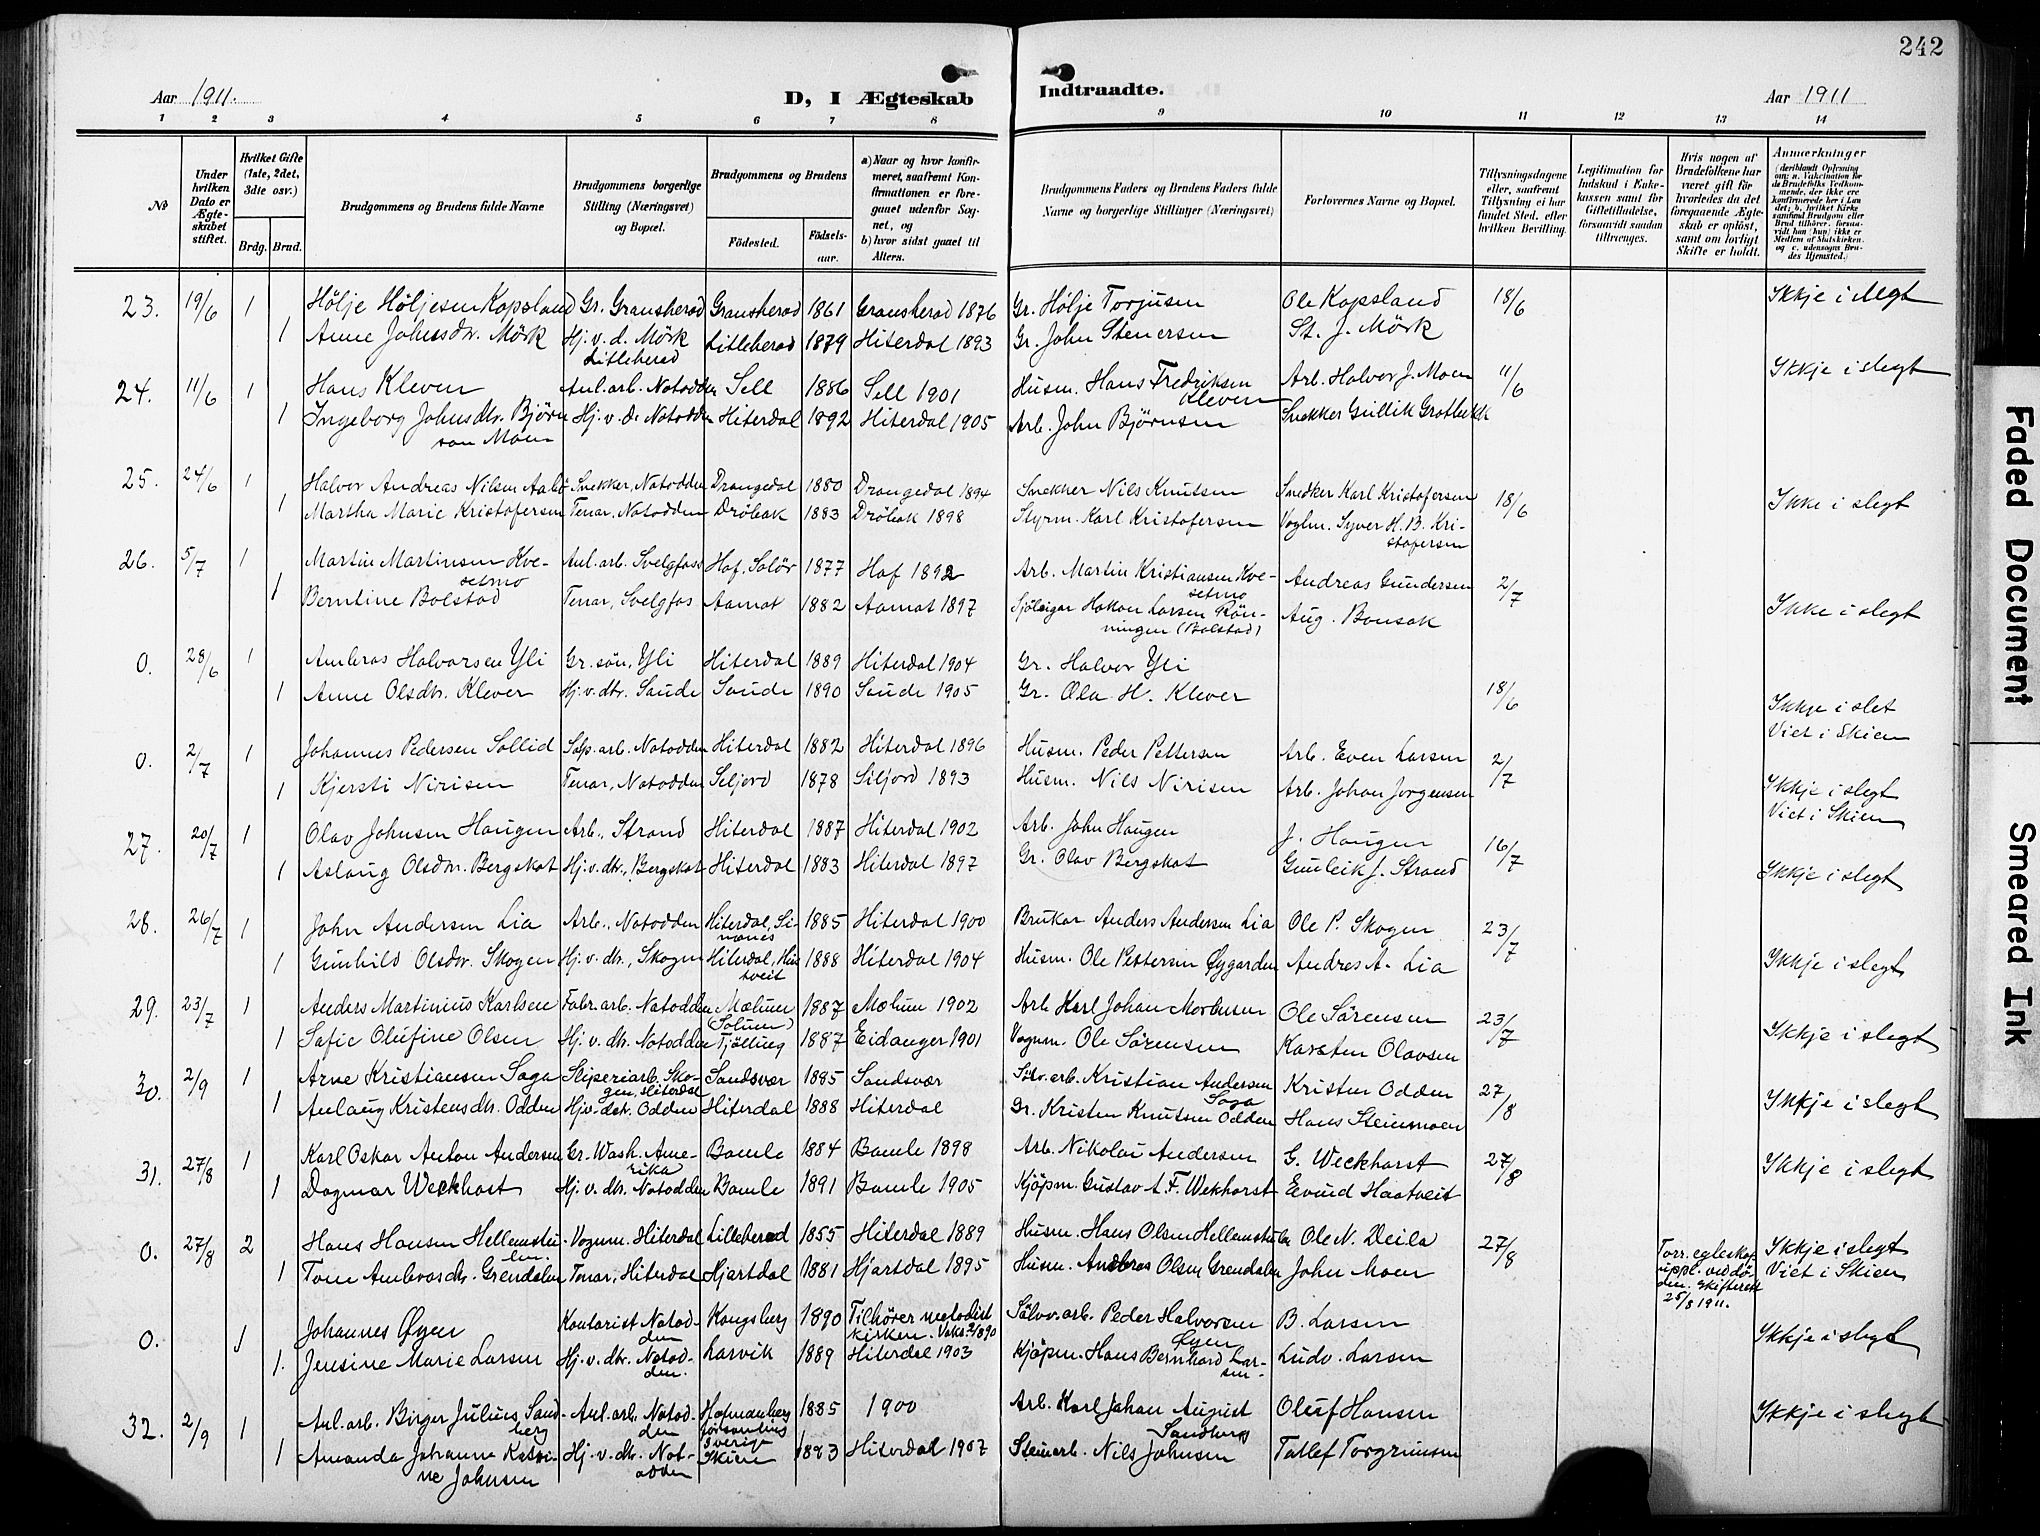 242
Aar 1911.
D, I Ægteskab Indtraadte.
Aar 1911
1 2 3 4 5 6 7 8 9 10 11 12 13 14
No
Under hvilken Dato er Ægteskabet stiftet.
Hvilket Gifte (1ste, 2det, 3die osv.)
Brdg. Brud.
Brudgommens og Brudens fulde Navne
Brudgommens borgerlige Stilling (Næringsvei) og Bopæl.
Brudgommens og Brudens
Födested. Födsels-aar.
a) Naar og hvor konfirmeret, saafremt Konfirmationen er foregaaet udenfor Sognet, og
b) hvor sidst gaaet til Alters.
Brudgommens Faders og Brudens Faders fulde Navne og borgerlige Stillinger (Næringsvei)
Forlovernes Navne og Bopæl.
Tillysningsdagene eller, saafremt Tillysning ei har fundet Sted, efter hvilken Bevilling.
Legitimation for Indskud i Enkekassen samt for Giftetilladelse, forsaavidt saadan tiltrænges.
Hvis nogen af Brudefolkene har været gift før hvorledes da det foregaaende Ægteskab er oplöst, samt om lovligt Skifte er holdt.
Anmærkninger
23. 19/6 1 Hølje Høljesen Kopsland Gr. Gransherad Gransherad 1861 Gransherad 1876 Gr. Hølje Torjusen Ole Kopsland 18/6 Ikkje i slegt
1 Anne Johnsdtr. Mörk Hj.v.d. Mörk Litleherad Litleherad 1879 Hiterdal 1893 Gr. John Stenersen St. J. Mörk
24. 11/6 1 Hans Kleven Anl.arb. Notodden Sell 1886 Sell 1901 Husm. Hans Fredriksen Kleven Arb. Halvor J. Moen 11/6 Ikkje i slegt
1 Ingeborg Johnsdtr. Björnson Moen Hj.v.d. Notodden Hiterdal 1892 Hiterdal 1905 Arb. John Bjørnsen Snekker Gullik Grotbekk
25. 24/6 1 Halvor Andreas Nilsen Aabö Snekker, Notodden Drangedal 1880 Drangedal 1894 Snekker Nils Knutsen Snedker Karl Kristofersen 18/6 Ikke i slegt
1 Martha Marie Kristofersen Tenar, Notodden Dröbak 1883 Dröbak 1898 Styrm. Karl Kristofersen Voglm. Syver H. B. Kristofersen
26. 5/7 1 Martin Martinsen Kvesetmo Anl.arb. Svelgfoss Hof, Solör 1877 Hof 1892 Arb. Martin Kristiansen Kvesetmo Andreas Gundersen 2/7
1 Berntine Bolstad Tenar, Svelgfos Aamot 1882 Aamot 1897 Sjöleigar Hakon Larsen Rönningen (Bolstad) Aug. Bonsak Ikke i slegt
0. 28/6 1 Ambros Halvorsen Yli Gr.sön, Yli Hiterdal 1889 Hiterdal 1904 Gr. Halvor Yli
1 Anne Olsdtr. Klever Hj.v.dtr. Saude Saude 1890 Saude 1905 Gr. Ola H. Klever 18/6 Ikkje i slet Viet i Skien
0. 2/7 1 Johannes Pedersen Sollid Sap.arb. Notodden Hiterdal 1882 Hiterdal 1896 Husm. Peder Pettersen Arb. Even Larsen 2/7
1 Kjersti Nirisen Tenar, Notodden Seljord 1878 Siljord 1893 Husm. Nils Nirisen Arb. Johan Jorgensen Ikkje i slegt Viet i Skien
27. 20/7 1 Olav Johnsen Haugen Arb., Strand Hiterdal 1887 Hiterdal 1902 Arb. John Haugen J. Haugen 16/7
1 Aslaug Olsdtr. Bergskot Hj.v.dtr., Bergskot Hiterdal 1883 Hiterdal 1897 Gr. Olav Bergskot Gunleik J. Strand Ikkje i slegt
28. 26/7 1 John Andersen Lia Arb., Notodden Hiterdal, Simones 1885 Hiterdal 1900 Brukar Anders Andersen Lia Ole P. Skogen 23/7
1 Gunhild Olsdtr. Skogen Hj.v.dtr., Skogen Hiterdal, 1888 Hiterdal 1904 Husm. Ole Pettersen Øygarden Andres A. Lia Ikkje i slegt
29. 23/7 1 Anders Martinius Karlsen Fabr.arb. Notodden Mælum (Solum) 1887 Mælum 1902 Arb Karl Johan Mortensen Ole Sörensen 23/7
1 Sofie Olufine Olsen Hj.v.dtr. Notodden Tjölling 1887 Eidanger 1901 Vognm. Ole Sörensen Karsten Olavsen Ikkje i slegt
30. 2/9 1 Arne Kristiansen Saga Sliperiarb. Skogen, Hiterdal Sandsvær 1885 Sandsvær Sölv.arb. Kristian Andersen Saga Kristen Odden 27/8
1 Anlaug Kristensdtr. Odden Hjv.dtr. Odden Hiterdal 1888 Hiterdal Gr. Kristen Knutsen Odden Hans Steinmoen Ikkje i slegt
31. 27/8 1 Karl Oskar Anton Andersen Gr. Wash. Amerika Bamle 1884 Bamle 1898 Arb. Nikolai Andersen G. Weckhorst 27/8 Ikkje i slegt
1 Dagmar Weckhost Hj.v.dtr. Notodden Bamle 1891 Bamle 1905 Kjöpm. Gustav A. F. Wekhorst Eivind Haatveit
0. 27/8 2 Hans Hansen Hellemstulen Vognm. Hiterdal Lilleherad 1855 Hiterdal 1889 Husm. Hans Olsen Hellemstulen Ole N. Deila 27/8 Forr. egteskap uppl. ved döden. Skifterett 25/8 1911. Ikkje i slegt Viet i Skien
1 Tone Ambrosdtr. Grendalen Tenar, Hiterdal Hjartdal 1881 Hjartdal 1895 Husm. Ambros Olsen Grendalen John Moen
0. 1 Johannes Øyen Kontorist Notodden Kongsberg 1890 Tilhörer metodistkirken. Vaks. 2/8 90 Sölvv.arb. Peder Halvorsen Øyen B. Larsen Ikkje i slegt
1. Jensine Marie Larsen Hj.v.dtr. Notodden. Larvik 1889 Hiterdal 1903 Kjöpm. Hans Bernhard Larsen Ludv. Larsen
32. 2/9 1 Anl.arb. Birger Julius Sandberg Anl.arb. Notodden Sverige 1885 1900 Arb. Karl Johan August Sandberg Oluf Hansen Ikkje i slegt
1 Amanda Johanne Katrine Johnsen Hj.v.dtr. Notodden Skien 1893 Hiterdal 1907 Steinarb. Nils Johnsen Tallef Torgrimsen
Faded Document
Smeared Ink